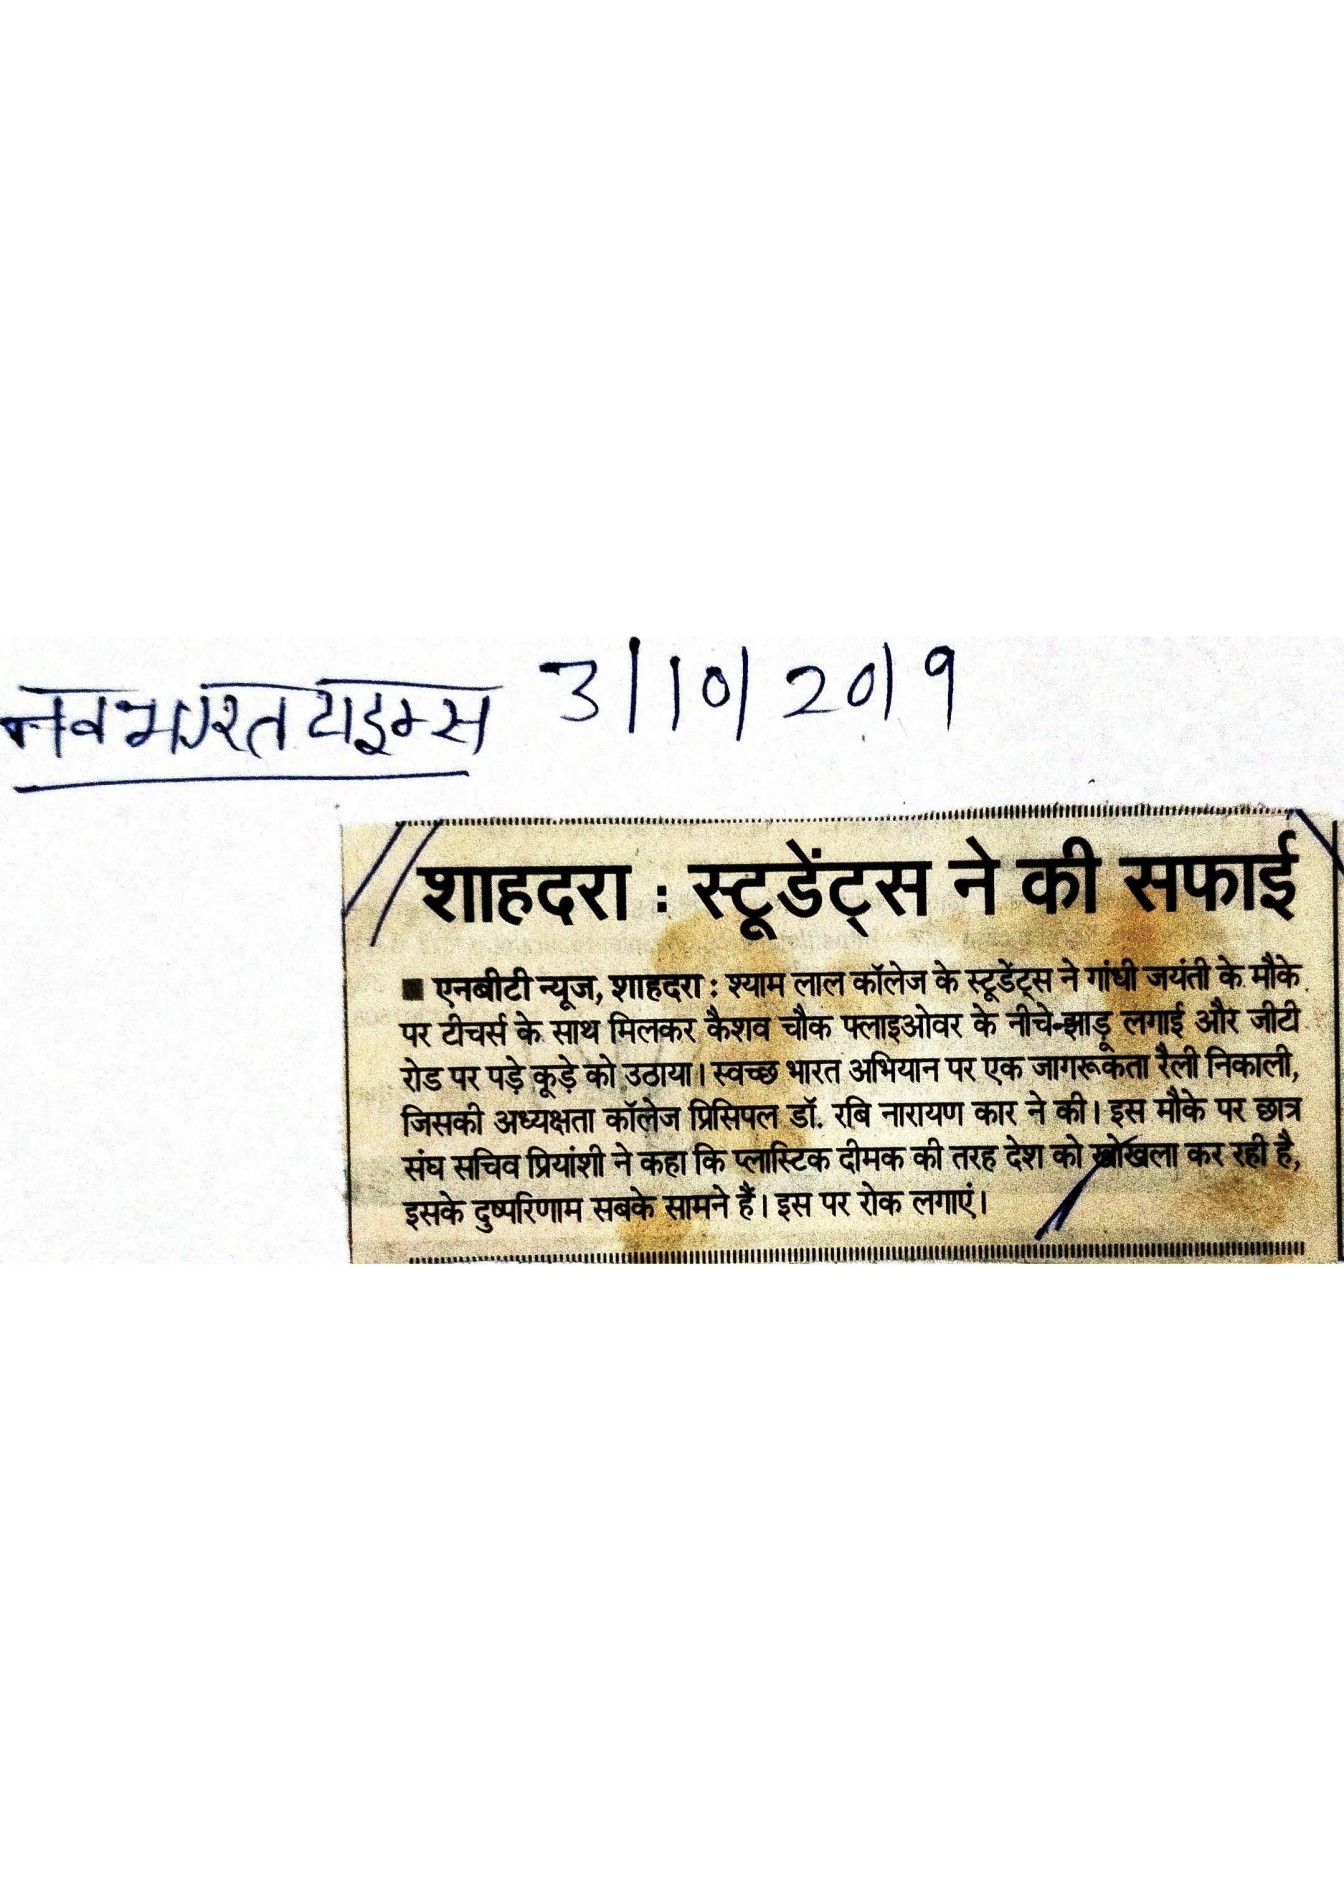 नवभारत टाइम्स 3/10/2019
शाहदरा : स्टूडेंट्स ने की सफाई
■ एनबीटी न्यूज, शाहदरा : श्याम लाल कॉलेज के स्टूडेंट्स ने गांधी जयंती के मौके
पर टीचर्स के साथ मिलकर कैशव चौक फ्लाइओवर के नीचे झाड़ू लगाई और जीटी
रोड पर पड़े कूड़े को उठाया। स्वच्छ भारत अभियान पर एक जागरूकता रैली निकाली,
जिसकी अध्यक्षता कॉलेज प्रिंसिपल डॉ. रबि नारायण कार ने की। इस मौके पर छात्र
संघ सचिव प्रियांशी ने कहा कि प्लास्टिक दीमक की तरह देश को खोखला कर रही है,
इसके दुष्परिणाम सबके सामने हैं। इस पर रोक लगाएं।